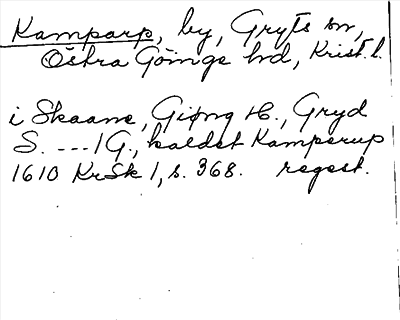 Kamparp, by, Gryts sn,
Östra Göinge hd, Krist. l.
i Skaane, Giøng H., Gryd
S. --- 1 G., kaldet Kamperup
1610 KrSk 1, s. 368. regest.